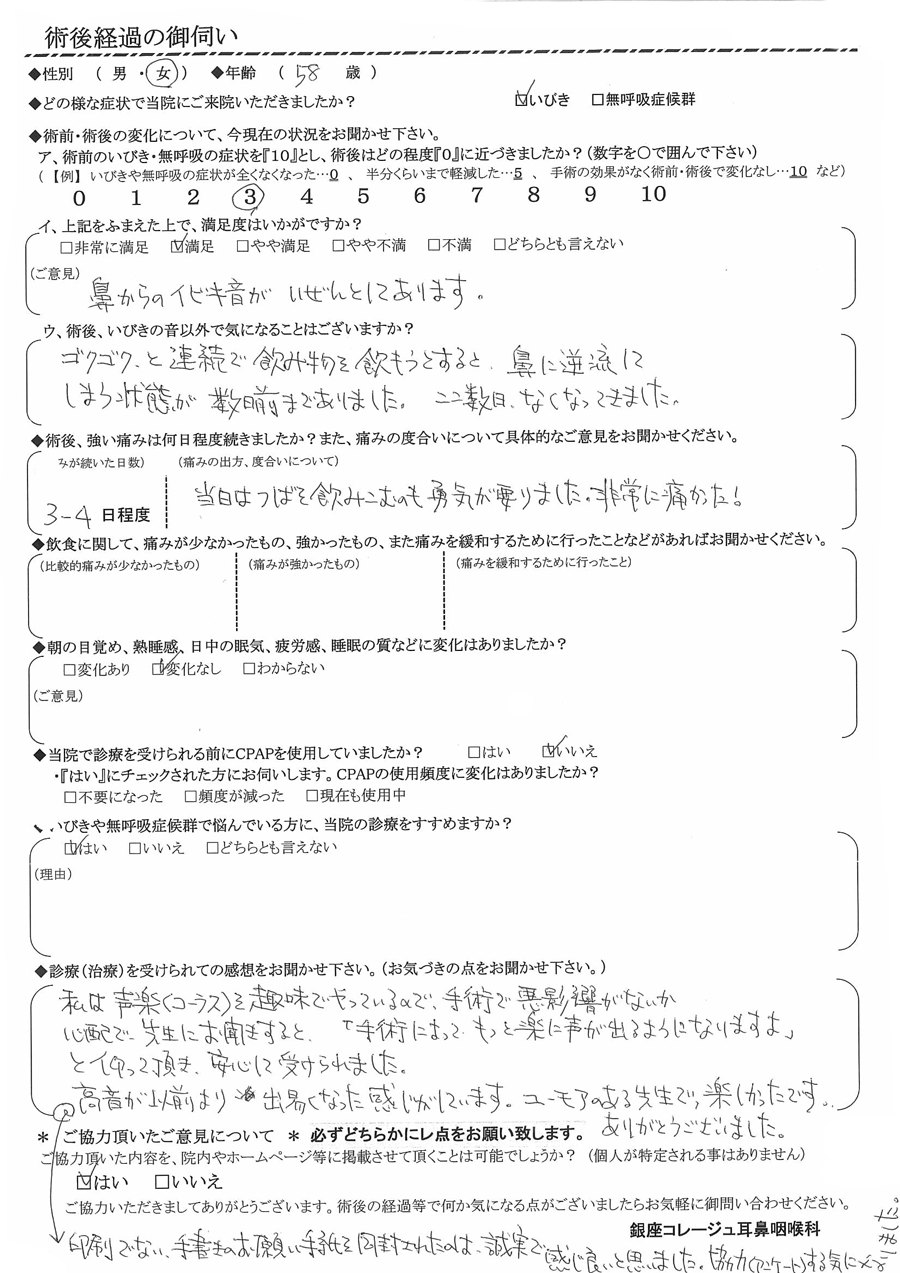 術後経過の御伺い
◆性別 ( 男 ・ 女 ) ◆年齢 ( 58 歳 )
◆どの様な症状で当院にご来院いただきましたか? ☑いびき □無呼吸症候群
◆術前・術後の変化について、今現在の状況をお聞かせ下さい。
ア、術前のいびき・無呼吸の症状を『10』とし、術後はどの程度『0』に近づきましたか?(数字を○で囲んで下さい)
(【例】 いびきや無呼吸の症状が全くなくなった…0 、 半分くらいまで軽減した…5 、 手術の効果がなく術前・術後で変化なし…10 など)
0 1 2 3 4 5 6 7 8 9 10
イ、上記をふまえた上で、満足度はいかがですか?
□非常に満足 ☑満足 □やや満足 □やや不満 □不満 □どちらとも言えない
(ご意見)
鼻からのイビキ音が いぜんとしてあります。
ウ、術後、いびきの音以外で気になることはございますか?
ゴクゴク、と連続で飲み物を飲もうとすると、鼻に逆流して
しまう状態が 数日前まてありました。 ここ数日、なくなってきました。
◆術後、強い痛みは何日程度続きましたか?また、痛みの度合いについて具体的なご意見をお聞かせください。
みが続いた日数) (痛みの出方、度合いについて)
3-4 日程度 当日はつばを飲みこむのも勇気が要りました。非常に痛かった!
◆飲食に関して、痛みが少なかったもの、強かったもの、また痛みを緩和するために行ったことなどがあればお聞かせください。
(比較的痛みが少なかったもの) (痛みが強かったもの) (痛みを緩和するために行ったこと)
◆朝の目覚め、熟睡感、日中の眠気、疲労感、睡眠の質などに変化はありましたか?
□変化あり ☑変化なし □わからない
(ご意見)
◆当院で診療を受けられる前にCPAPを使用していましたか? □はい ☑いいえ
・『はい』にチェックされた方にお伺いします。CPAPの使用頻度に変化はありましたか?
□不要になった □頻度が減った □現在も使用中
いびきや無呼吸症候群で悩んでいる方に、当院の診療をすすめますか?
☑はい □いいえ □どちらとも言えない
(理由)
◆診療(治療)を受けられての感想をお聞かせ下さい。(お気づきの点をお聞かせ下さい。)
私は声楽(コーラス)を趣味でやっているので、手術で悪影響がないか
心配で、先生にお聞きすると、「手術によって もっと楽に声が出るようになりますよ」
と仰って頂き、安心して受けられました。
高音が以前より 出易くなった感じがしています。ユーモアのある先生で、楽しかったです。
ありがとうございました。
＊ ご協力頂いたご意見について ＊ 必ずどちらかにレ点をお願い致します。
ご協力頂いた内容を、院内やホームページ等に掲載させて頂くことは可能でしょうか? (個人が特定される事はありません)
☑はい □いいえ
ご協力いただきましてありがとうございます。術後の経過等で何か気になる点がございましたらお気軽に御問い合わせください。
銀座コレージュ耳鼻咽喉科
印刷でない、手書きのお願い手紙を同封されたのは、誠実で感じ良いと思いました。協力(アンケート)する気になりました。